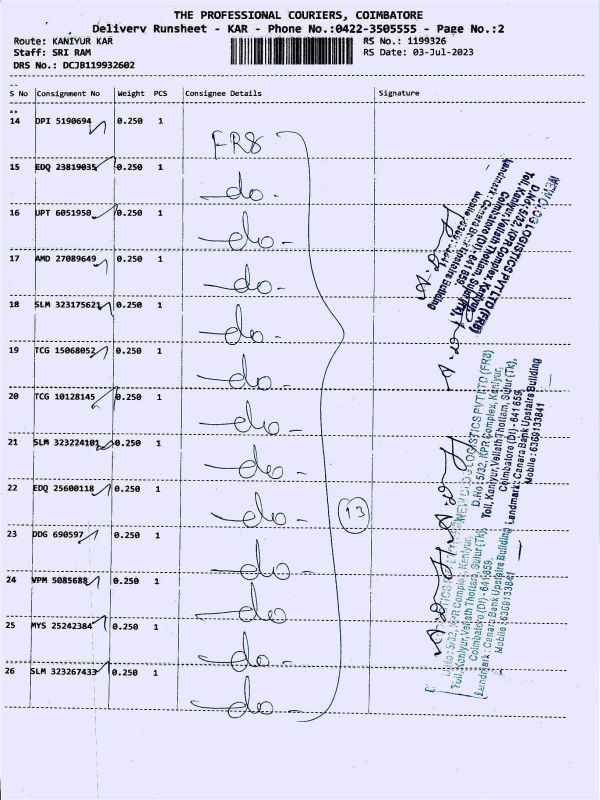 THE PROFESSIONAL COURIERS, COIMBATORE
Delivery Runsheet - KAR - Phone No.:0422-3505555 - Page No.:2
Route: KANIYUR KAR
RS No.: 1199326
Staff: SRI RAM
RS Date: 03-Jul-2023
DRS No.: DCJB119932602
S No Consignment No Weight PCS Consignee Details Signature
14 DPI 5190694 0.250 1 FR8
15 EDQ 23819035 0.250 1 -do-
16 UPT 6051950 0.250 1 -do-
17 AMD 27089649 0.250 1 -do-
18 SLM 323175621 0.250 1 -do-
19 TCG 15068052 0.250 1 -do-
20 TCG 10128145 0.250 1 -do-
21 SLM 323224101 0.250 1 -do-
22 EDQ 25600118 0.250 1 -do-
23 DDG 690597 0.250 1 -do-
24 VPM 5085688 0.250 1 -do-
25 MYS 25242384 0.250 1 -do-
26 SLM 323267433 0.250 1 -do-
13
LOGISTICS PVT LTD (FR8)
D.No: 5/32, KPR Complex, Kaniyur,
Toll, Kaniyur, Vellath Thottam, Sulur (Tk),
Coimbatore (Dt) - 641 659.
Landmark: Canara Bank Upstairs Building
LOGISTICS PVT LTD (FR8)
D.No: 5/32, KPR Complex, Kaniyur,
Toll, Kaniyur, Vellath Thottam, Sulur (Tk),
Coimbatore (Dt) - 641 659.
Landmark: Canara Bank Upstairs Building
Mobile: 6369133841
5/32, KPR Complex, Kaniyur,
Toll, Kaniyur, Vellath Thottam, Sulur (Tk),
Coimbatore (Dt) - 641 659.
Landmark: Canara Bank Upstairs Building
Mobile: 6369133841